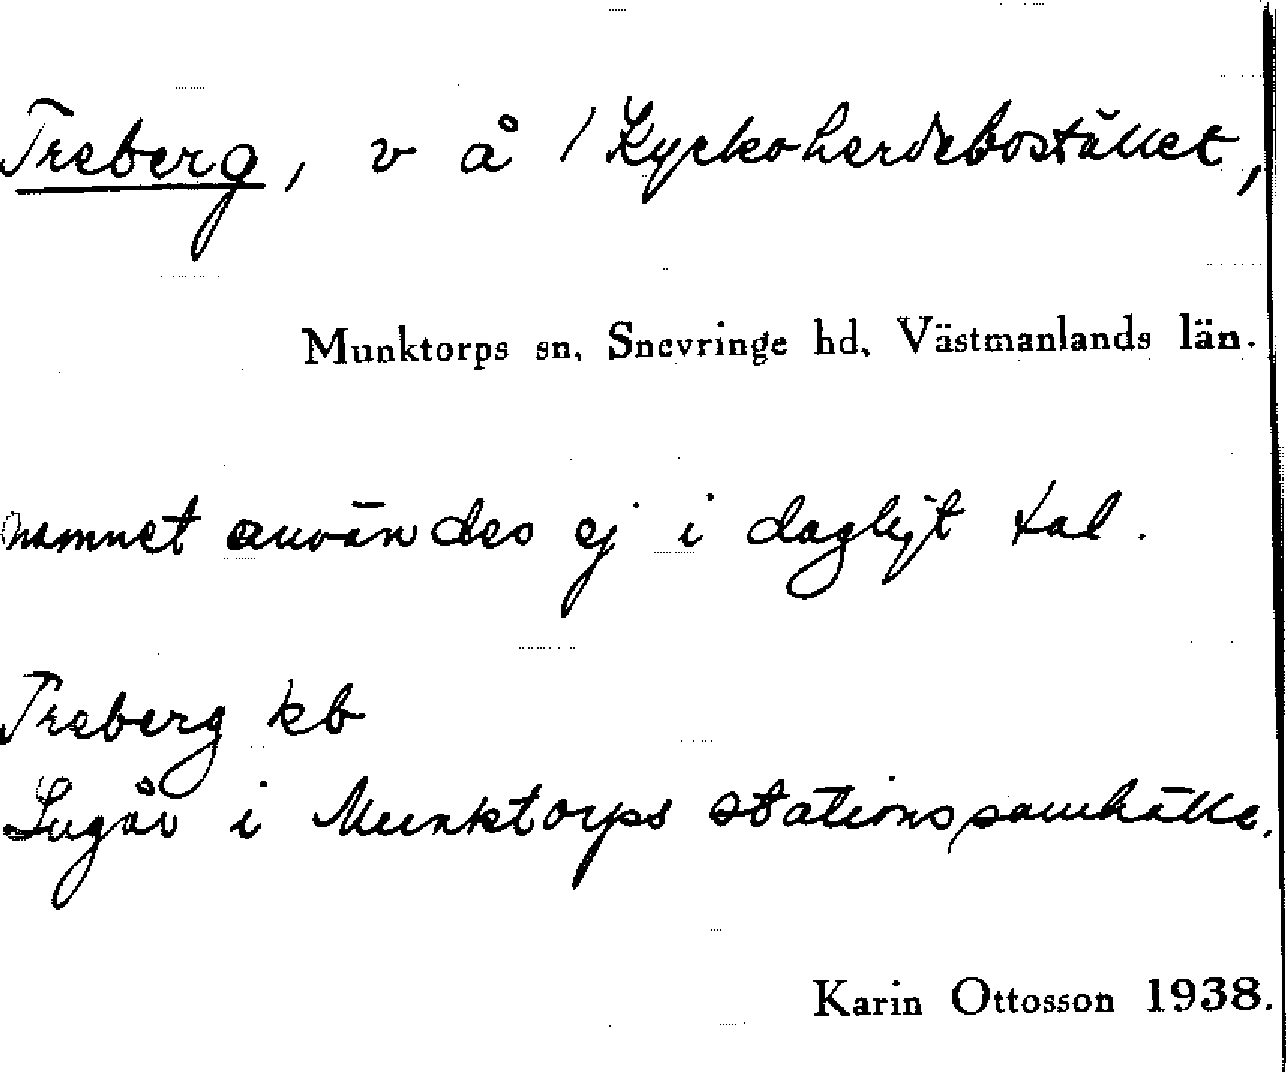 Treberg, v å / Kyrkoherdebostället,
Munktorps sn, Snevringe hd, Västmanlands län.
namnet användes ej i dagligt tal.
Treberg kb
Ingår i Munktorps stationssamhälle.
Karin Ottosson 1938.